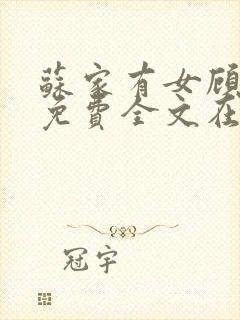 蘇家有女顾
免費全文在
冠宇